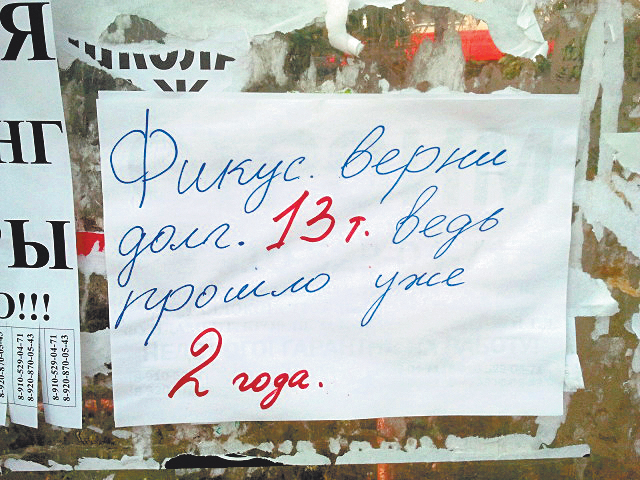 Я
НГ
РЫ
О!!!
ШКОЛА
Ж
Фикус. верни
долг. 13 т. ведь
прошло уже
2 года.
8-920-870-05-43
8-910-529-04-71
8-920-870-05-43
8-910-529-04-71
8-920-870-05-43